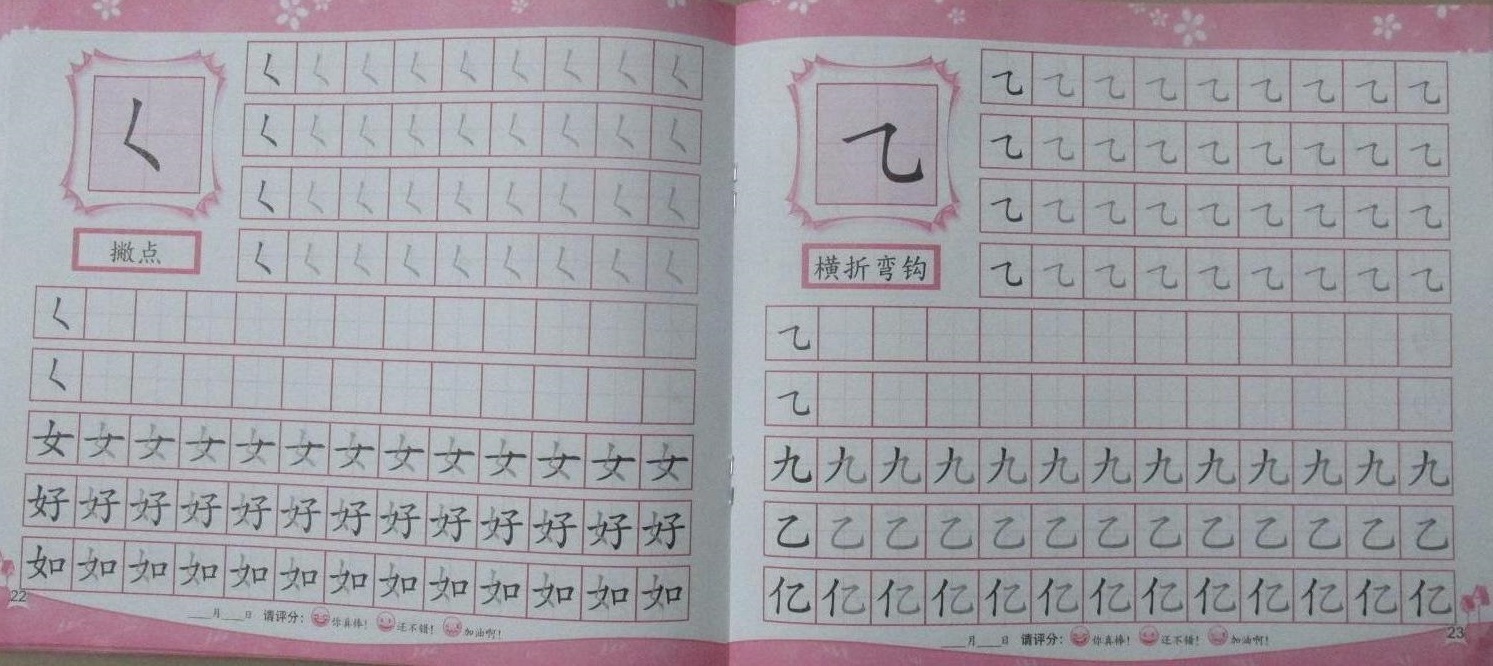 ㇛
㇛㇛㇛㇛㇛㇛㇛㇛㇛
㇛㇛㇛㇛㇛㇛㇛㇛㇛
㇛㇛㇛㇛㇛㇛㇛㇛㇛
撇点
㇛㇛㇛㇛㇛㇛㇛㇛㇛
㇛
㇛
女女女女女女女女女女女女女
好好好好好好好好好好好好好
如如如如如如如如如如如如如
22
___月___日 请评分: 你真棒! 还不错! 加油啊!
㇈
㇈㇈㇈㇈㇈㇈㇈㇈㇈
㇈㇈㇈㇈㇈㇈㇈㇈㇈
㇈㇈㇈㇈㇈㇈㇈㇈㇈
横折弯钩
㇈㇈㇈㇈㇈㇈㇈㇈㇈
㇈
㇈
九九九九九九九九九九九九九
乙乙乙乙乙乙乙乙乙乙乙乙乙
亿亿亿亿亿亿亿亿亿亿亿亿亿
___月___日 请评分: 你真棒! 还不错! 加油啊!
23